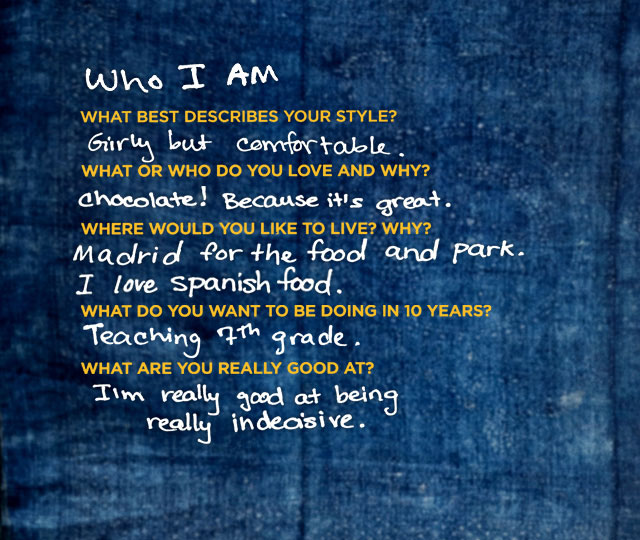 Who I AM
WHAT BEST DESCRIBES YOUR STYLE?
Girly but comfortable.
WHAT OR WHO DO YOU LOVE AND WHY?
Chocolate! Because it's great.
WHERE WOULD YOU LIKE TO LIVE? WHY?
Madrid for the food and park.
I love spanish food.
WHAT DO YOU WANT TO BE DOING IN 10 YEARS?
Teaching 7th grade.
WHAT ARE YOU REALLY GOOD AT?
I'm really good at being
really indecisive.